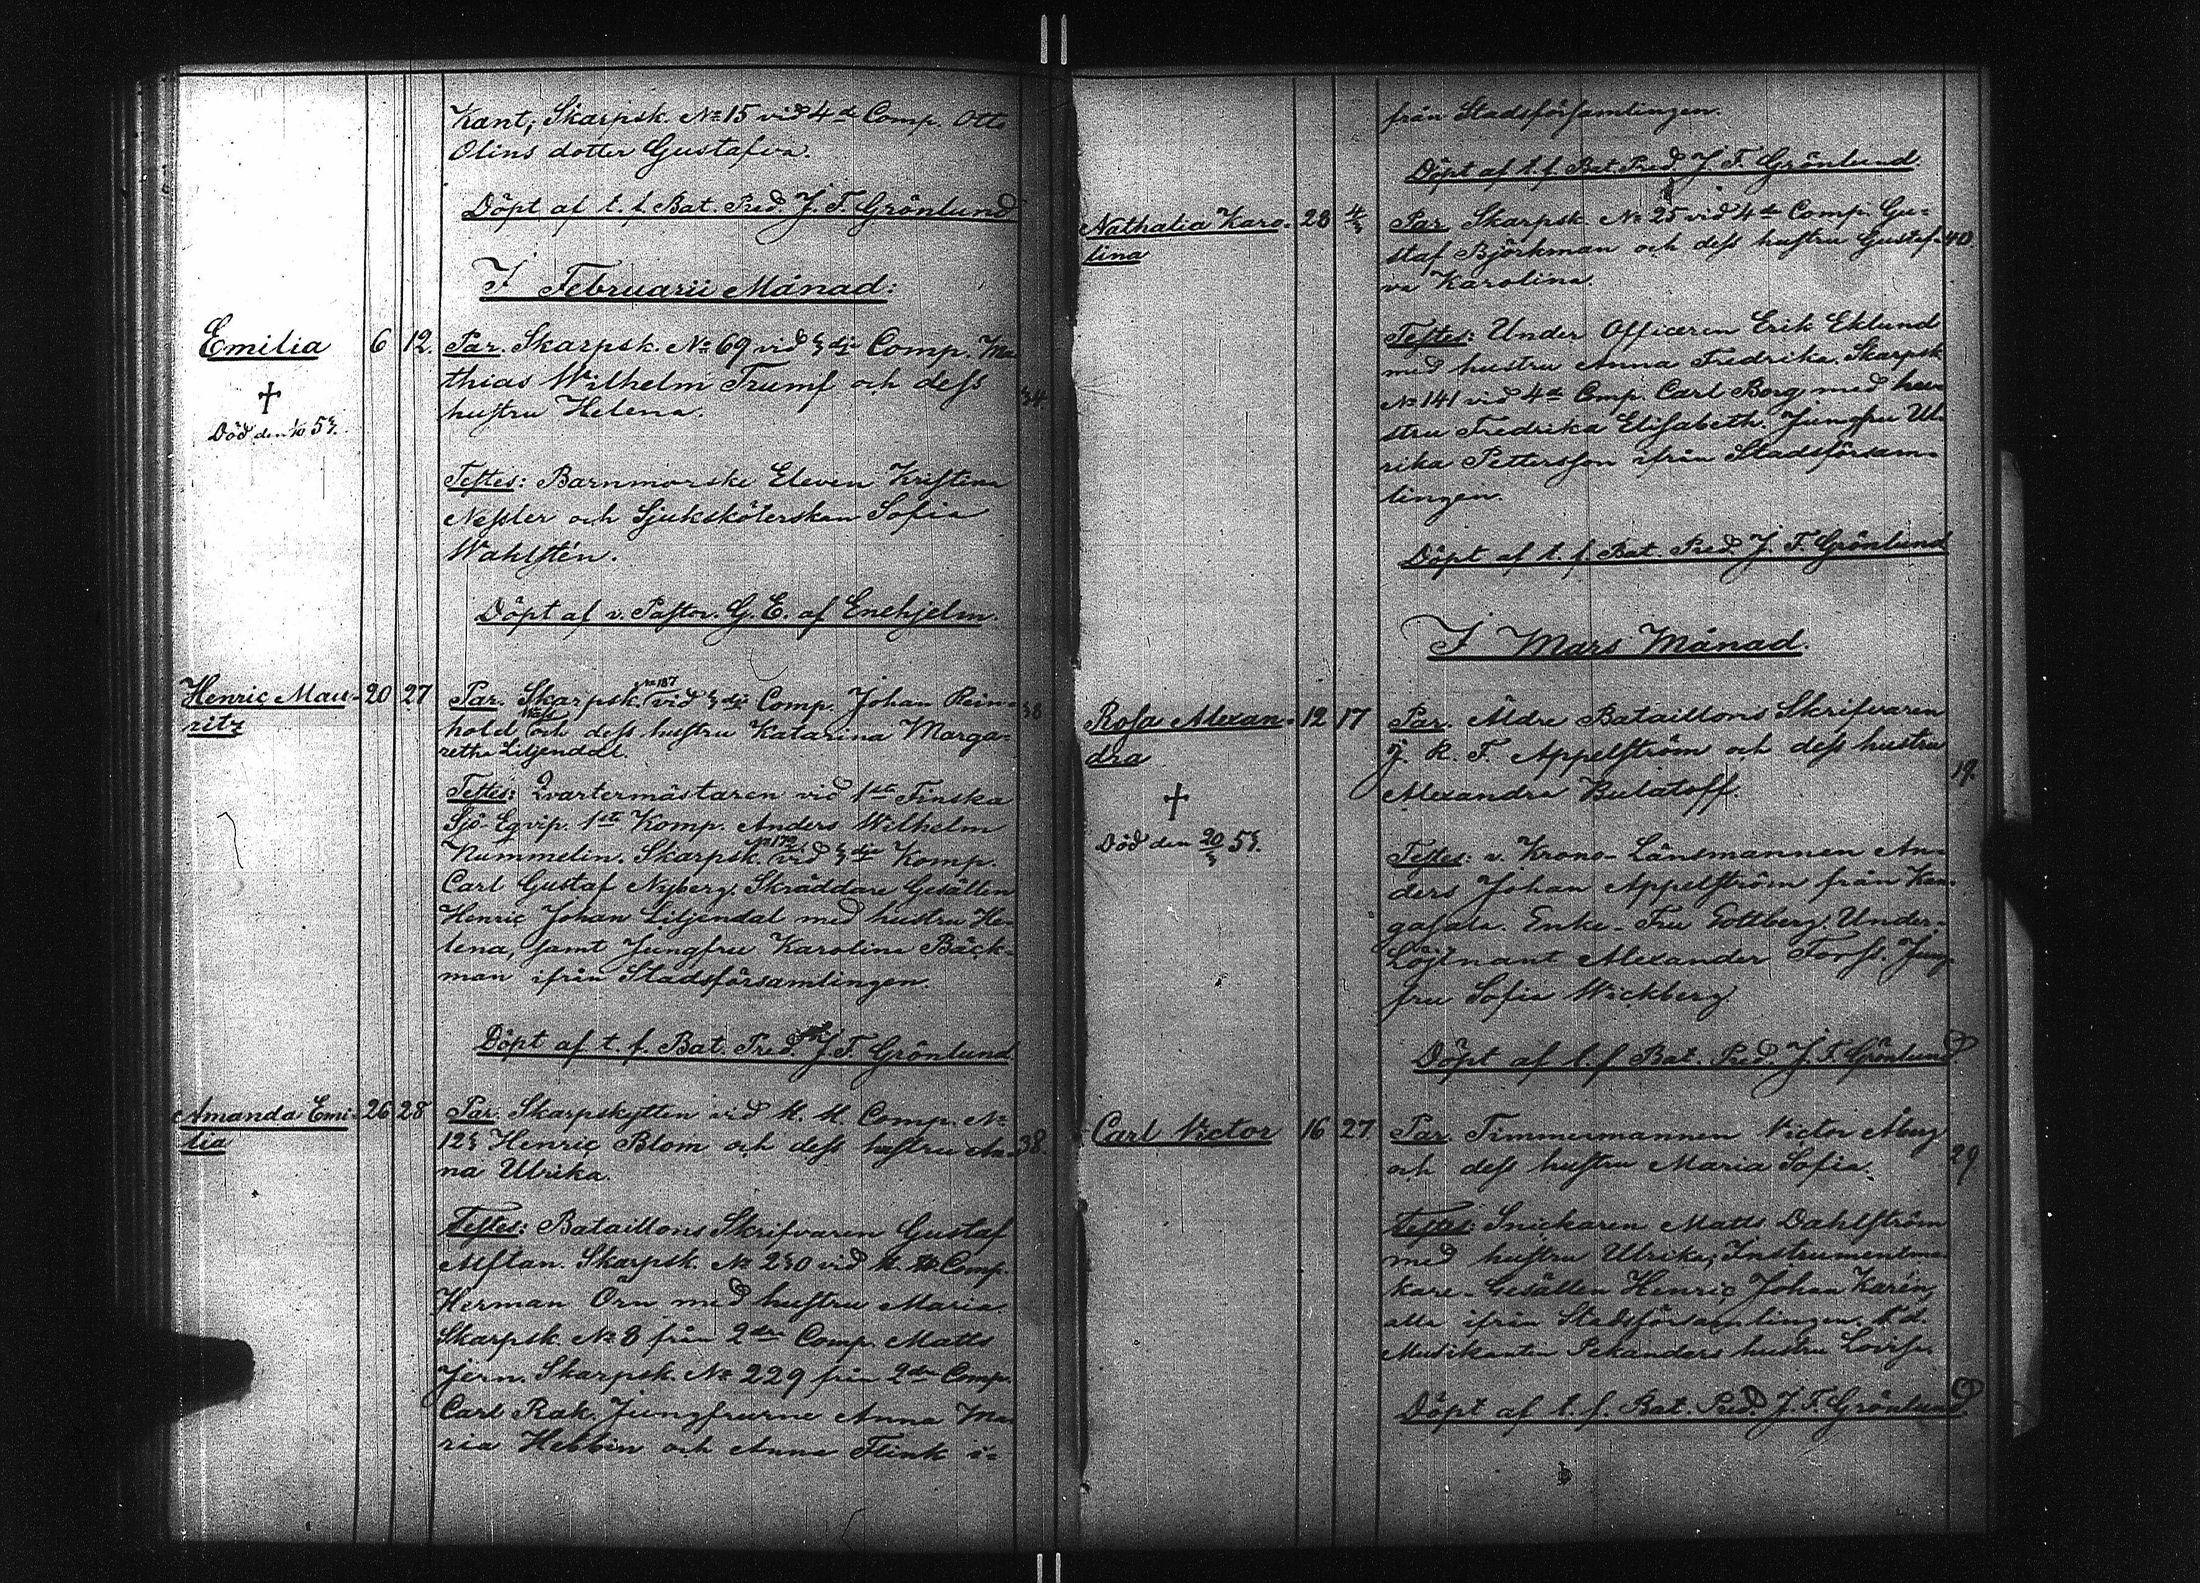 Kant, Skarpsk. No 15 vid 4de Comp. Otto
Olins dotter Gustafva.
Döpt af t. f. Bat. Pred. J. F. Grönlund
I Februarii Månad:
Emilia 6 12. Par. Skarpsk. No 69 vid 3dje Comp. Ma
thias Wilhelm Trumf och dess
34.
hustru Helena.
Död den 1/10 53.
Testes: Barnmorske Eleven Kristina
Nessler och Sjuksköterskan Sofia
Wahlstén.
Döpt af v. Pastor G. E. af Enehjelm.
Henric Mau- 20 27 Par. Skarpsk. No 187 vid 3dje Comp. Johan Rein- 38
ritz hold och dess hustru Katarina Marga-
retha Liljendal.
Testes: Qvartermästaren vid 1sta Finska
Sjö-Eqvip. 1sta Komp. Anders Wilhelm
Nummelin. Skarpsk. vid 3dje Komp.
Carl Gustaf Nyberg. Skräddare Gesällen
Henric Johan Liljendal med hustru He-
lena, samt Jungfru Karolina Bäck-
man ifrån Stadsförsamlingen.
Döpt af t. f. Bat. Pred. J. F. Grönlund.
Amanda Emi- 26 28 Par. Skarpskytten vid M. M. Comp. No
lia 123 Henric Blom och dess hustru An- 38.
na Ulrika.
Testes: Bataillons Skrifvaren Gustaf
Alftan. Skarpsk. No 230 vid M. M. Comp.
Herman Örn med hustru Maria
Skarpsk. No 8 från 2dra Comp. Matts
Jern. Skarpsk. No 229 från 2dra Comp.
Carl Rak. Jungfrurne Anna Ma-
ria Hebbin och Anna Flink i-
från Stadsförsamlingen.
Döpt af t. f. Bat. Pred. J. F. Grönlund
Nathalia Karo- 28 4/3 Par. Skarpsk. No 25 vid 4de Comp. Gu-
lina staf Björkman och dess hustru Gustaf- 40.
va Karolina.
Testes: Under Officeren Erik Eklund
med hustru Anna Fredrika. Skarpsk.
No 141 vid 4de Comp. Carl Borg med hu-
stru Fredrika Elisabeth. Jungfru Ul-
rika Pettersson ifrån Stadsförsam-
lingen.
Döpt af t. f. Bat. Pred. J. F. Grönlund
I Mars Månad.
Rosa Alexan- 12 17 Par. Äldre Bataillons Skrifvaren
dra J. R. F. Appelström och dess hustru
19.
Alexandra Bulatoff.
Död den 20/3 53.
Testes: v. Krono-Länsmannen An-
ders Johan Appelström från Kan-
gasala. Enke-Fru Gottberg. Under-
Löjtnant Alexander Forss. Jung-
fru Sofia Wickberg
Döpt af t. f. Bat. Pred. J. F. Grönlund
Carl Victor 16 27 Par. Timmermannen Victor Åberg
och dess hustru Maria Sofia. 29
Testes: Snickaren Matts Dahlström
med hustru Ulrika, Instrumentma-
kare-Gesällen Henric Johan Karén,
alla ifrån Stadsförsamlingen.
Musikanten Pekanders hustru Lovisa.
Döpt af t. f. Bat. Pred. J. F. Grönlund